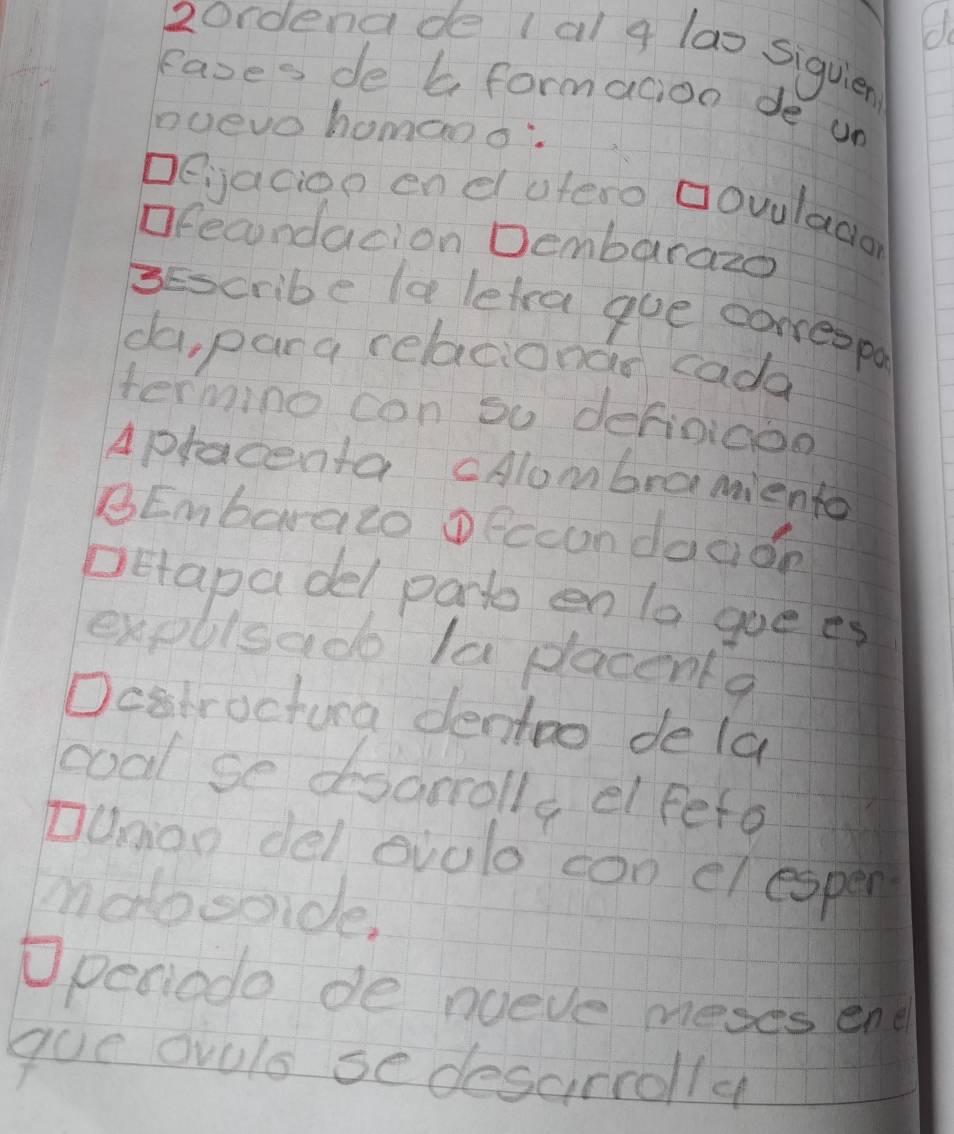 2 Ordena de 1 al 4 las siguien
fases de la formacion de un
nuevo homano:
□ fijacion en el utero □ ovulacion
□ fecundacion □ embarazo
3 Escribe la letra que correspon
da, para relacionar cada
termino con su definicion
A placenta C Alombramiento
B Embarazo D fecundación
□ Etapa del parto en la que es
expulsado la placenta
□ estructura dentro de la
cual se desarrolla el feto
□ Union del ovulo con el esper-
matosoide.
□ periodo de nueve meses en el
que ovulo se desarrolla